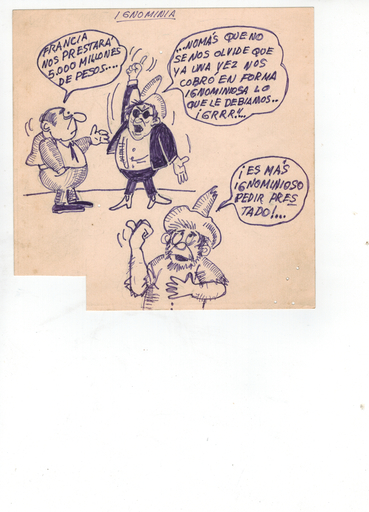 IGNOMINIA
FRANCIA
NOS PRESTARÁ
5.000 MILLONES
DE PESOS....
...NOMÁS QUE NO
SE NOS OLVIDE QUE
YA UNA VEZ NOS
COBRÓ EN FORMA
IGNOMINIOSA LO
QUE LE DEBIAMOS..
¡GRRR!!...
¡ES MÁS
IGNOMINIOSO
PEDIR PRES
TADO!...